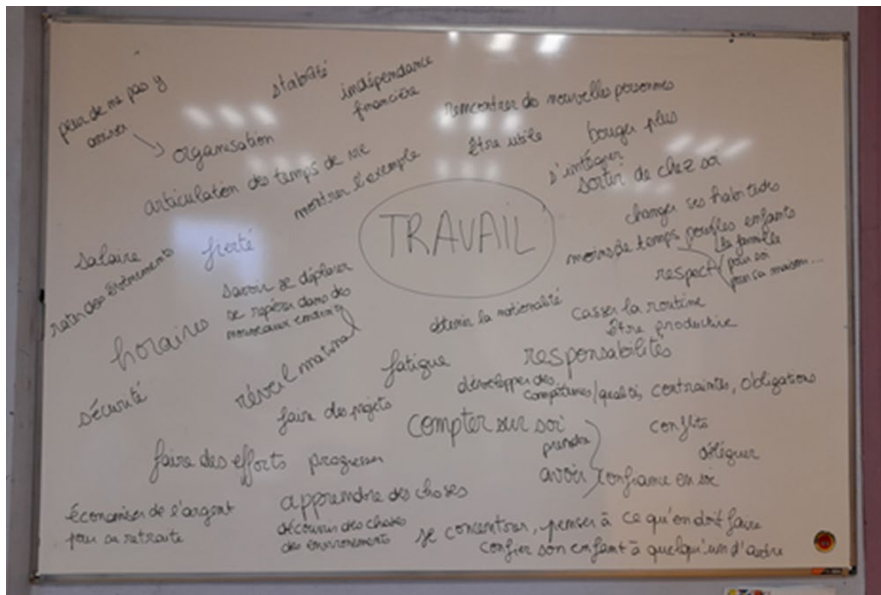 peur de ne pas y
arriver
stabilité
indépendance
financière
rencontrer de nouvelles personnes
organisation
être utile
bouger plus
s'intégrer
sortir de chez soi
articulation des temps de vie
montrer l'exemple
TRAVAIL
changer ses habitudes
moins de temps pour les enfants
la famille
pour soi
pour sa maison...
respect
salaire
fierté
rater des évènements
savoir se déplacer
se repérer dans des
nouveaux endroits
obtenir la nationalité
casser la routine
être productive
horaires
réveil matinal
fatigue
responsabilités
sécurité
développer des
compétences/qualités
contraintes, obligations
faire des projets
compter sur soi
conflits
déléguer
prendre
avoir
confiance en soi
faire des efforts
progresser
apprendre des choses
économiser de l'argent
pour sa retraite
découvrir des choses
des environnements
se concentrer, penser à ce qu'on doit faire
confier son enfant à quelqu'un d'autre